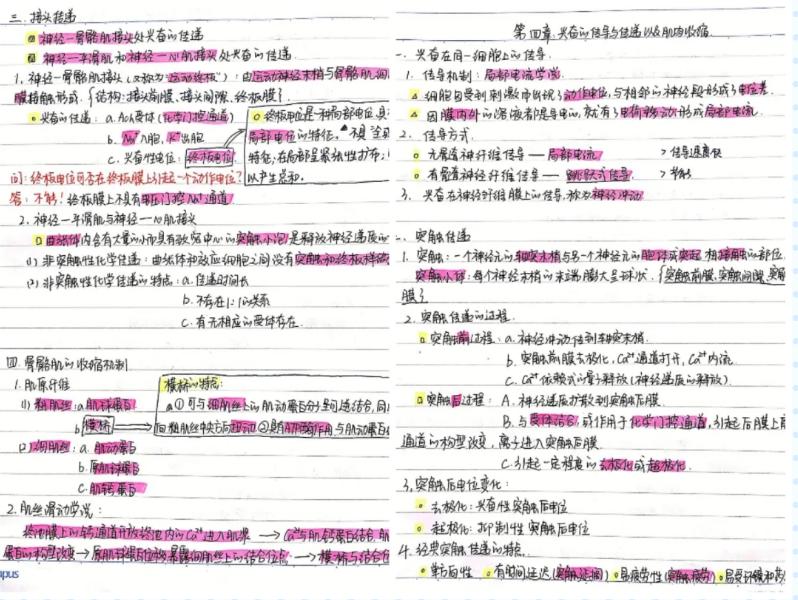 三. 接头传递
神经-骨骼肌接头处兴奋的传递
神经-平滑肌和神经-心肌接头处兴奋的传递
1. 神经-骨骼肌接头(又称为"运动终板"): 由运动神经末梢与骨骼肌细
膜接触形成. {结构: 接头前膜、接头间隙、终板膜}
兴奋的传递: a. Ach受体(化学门控通道)
b. Na⁺入胞, K⁺出胞
c. 兴奋性电位: 终板电位
终板电位是一种局部电位, 具
局部电位的特征,
特征; 在局部呈紧张性扩布;
以产生总和.
问: 终板电位可否在终板膜上引起一个动作电位?
答: 不能! 终板膜上不具有电压门控Na⁺通道
2. 神经-平滑肌与神经-心肌接头
曲张体内含有大量的小而具有致密中心的突触小泡是释放神经递质的
(1) 非突触性化学传递: 曲张体和效应细胞之间没有突触和终板样
(2) 非突触性化学传递的特点: a. 传递时间长
b. 不存在1:1的关系
c. 有无相应的受体存在.
四. 骨骼肌的收缩机制
1. 肌原纤维
(1) 粗肌丝: a. 肌球蛋白
b. 横桥
横桥的特点:
a ① 可与细肌丝上的肌动蛋白分子呈可逆结合, 同
向粗肌丝中央方向扭动 ② 具有ATP酶作用, 与肌动蛋白
(2) 细肌丝: a. 肌动蛋白
b. 原肌球蛋白
c. 肌钙蛋白
2. 肌丝滑动学说:
终池膜上的钙通道开放终池内的Ca²⁺进入肌浆 → Ca²⁺与肌钙蛋白结合, 肌
蛋白的构型改变 → 原肌球蛋白位移暴露细肌丝上的结合位点 → 横桥与结合
pus
第四章. 兴奋的传导与传递以及肌肉收缩.
一. 兴奋在同一细胞上的传导.
1. 传导机制: 局部电流学说.
细胞因受到刺激而出现了动作电位, 与相邻的神经段形成了电位差.
因膜内外的溶液都是导电的, 就有了电荷移动, 形成局部电流.
2. 传导方式.
无髓神经纤维传导 —— 局部电流 > 传导速度快
有髓神经纤维传导 —— 跳跃式传导. > 节能
3. 兴奋在神经纤维膜上的传导, 称为神经冲动
二. 突触传递
1. 突触: 一个神经元的轴突末梢与另一个神经元的胞体或突起相接触的部位.
突触小体: 每个神经末梢的末端膨大呈球状. {突触前膜, 突触间隙, 突触
膜}
2. 突触传递的过程.
突触前过程: a. 神经冲动传到轴突末梢.
b. 突触前膜去极化, Ca²⁺通道打开, Ca²⁺内流
c. Ca²⁺依赖式的量子释放(神经递质的释放).
突触后过程: A. 神经递质扩散到突触后膜.
B. 与受体结合, 或作用于化学门控通道, 引起后膜上
通道的构型改变, 离子进入突触后膜
C. 引起一定程度的去极化或超极化.
3. 突触后电位变化:
去极化: 兴奋性突触后电位
超极化: 抑制性突触后电位
4. 经典突触传递的特点.
单方向性 有时间延迟(突触延搁) 易疲劳性(突触疲劳)